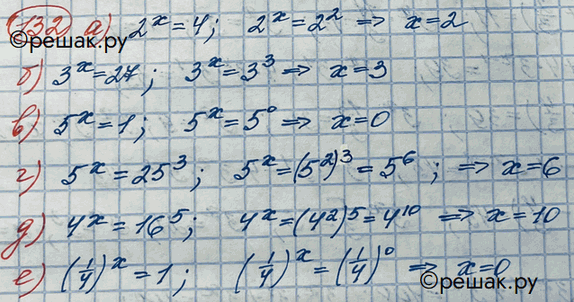 132 а) 2^x = 4; 2^x = 2^2 ⇒ x = 2
©решак.ру
б) 3^x = 27; 3^x = 3^3 ⇒ x = 3
в) 5^x = 1; 5^x = 5^0 ⇒ x = 0
г) 5^x = 25^3; 5^x = (5^2)^3 = 5^6; ⇒ x = 6
д) 4^x = 16^5; 4^x = (4^2)^5 = 4^10 ⇒ x = 10
е) (1/4)^x = 1; (1/4)^x = (1/4)^0 ⇒ x = 0
©решак.ру